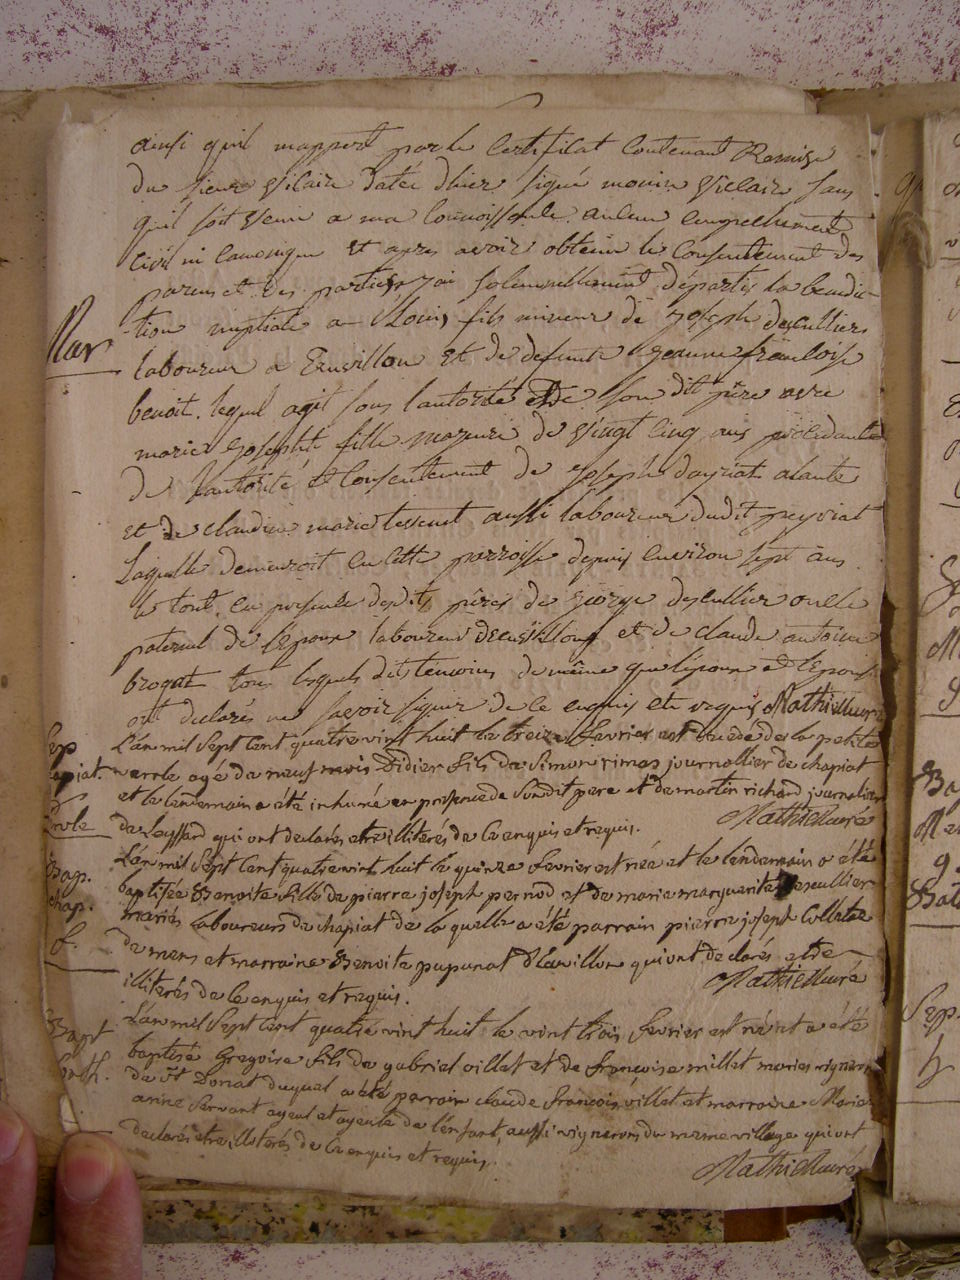 ainsi quil mappert par le Certificat Contenant Remise
du sieur vicaire datée dhier signé vicaire sans
quil soit venu a ma Connoissence aucun empechement
civil ni canonique Et apres avoir obtenu le Consentement des
parens et des parties jai solemnellement départis la benedic-
tion nuptiale a Louis fils mineur de joseph descullier
Mar
laboureur a Et de defunte jeanne françoise
benoit. lequel agit sous lautorité de son dit père avec
marie josephte fille majeure de vingt cinq ans procédante
de lautorité et Consentement de joseph dayriat
et de claudine marie tissent aussi laboureur dudit peyriat
Laquelle demeuroit en cette parroisse depuis environ sept ans
le tout en presence desdits pères de george descullier oncle
paternel de l'epoux laboureur et de claude antoine
brogat tous lesquels dits temoins de même que lepoux et l'epouse
ont declarés ne savoir signer de ce enquis et requis Mathieu curé
Sep
L'an mil sept cent quatre vint huit le treize fevrier est décédé de la petite
verole agé de neuf mois Didier fils de Simon rimas journallier de chapiat
et le lendemain a été inhumé en presence de son dit pere et de martin richard journalier
Mathieu curé
de Leyssard qui ont declarés etre illiterés de Ce enquis et requis.
L'an mil sept cent quatre vint huit le quinze fevrier est née et le lendemain a été
Bap.
chap.
f.
baptisée Benoite fille de pierre joseph pernod et de marie marguerite descullier
mariés laboureurs de chapiat de la quelle a été parrain pierre joseph Collatre
de mens et marraine Benoite papunat qui ont declarés etre
Mathieu curé
illiterés de Ce enquis et requis.
Bapt
L'an mil sept cent quatre vint huit le vint trois fevrier est né et a été
baptisé Gregoire fils de gabriel villet et de françoise millet mariés vignerons
de st Donat duquel a été parrain claude françois villet et marraine Marie
anne servant ayeul et ayeule de l'enfant, aussi vignerons du meme village qui ont
declarés etre illiterés de Ce enquis et requis.
Mathieu curé